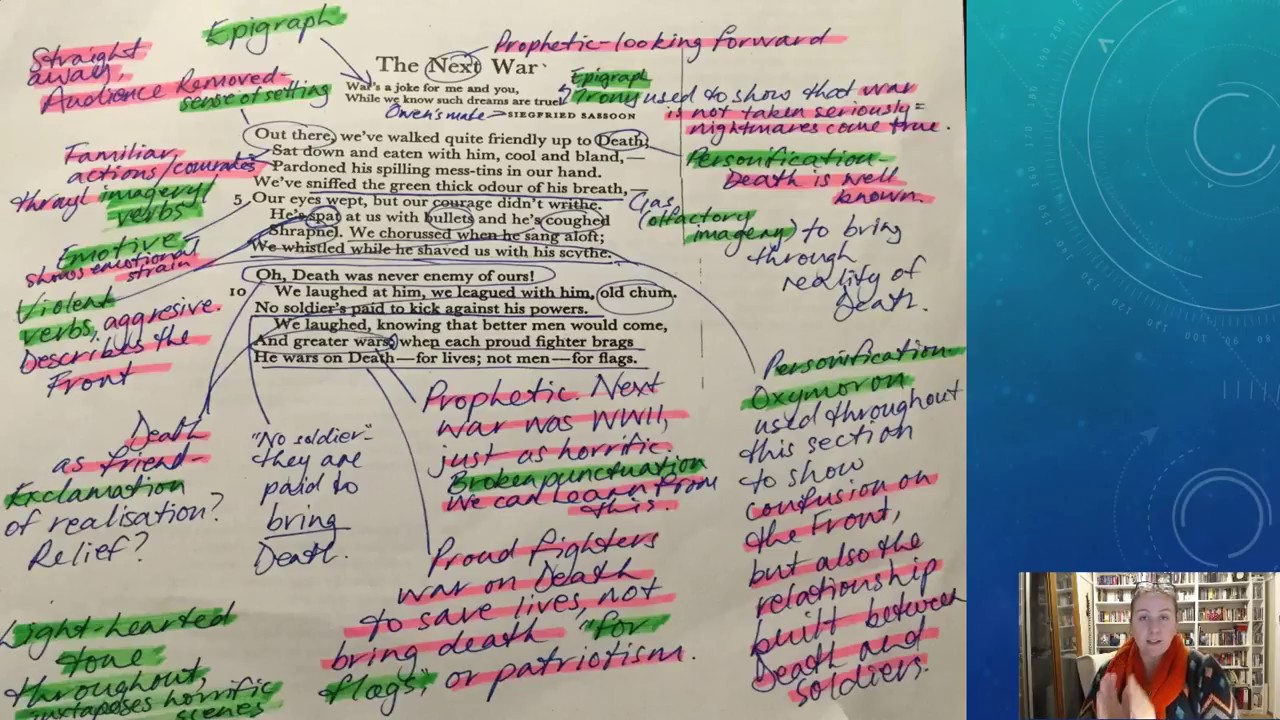 Epigraph
Straight
away,
Audience Removed-
sense of setting
Prophetic-looking forward
The Next War
War's a joke for me and you,
While we know such dreams are true.
Owen's mate
SIEGFRIED SASSOON
Epigraph
Irony used to show that war
is not taken seriously =
nightmares come true.
Out there, we've walked quite friendly up to Death;
Sat down and eaten with him, cool and bland,—
Pardoned his spilling mess-tins in our hand.
We've sniffed the green thick odour of his breath,—
5 Our eyes wept, but our courage didn't writhe.
He's spat at us with bullets and he's coughed
Shrapnel. We chorussed when he sang aloft;
We whistled while he shaved us with his scythe.
Oh, Death was never enemy of ours!
10 We laughed at him, we leagued with him, old chum.
No soldier's paid to kick against his powers.
We laughed, knowing that better men would come,
And greater wars; when each proud fighter brags
He wars on Death—for lives; not men—for flags.
Familiar
actions/comrades
through imagery/
verbs
Emotive
shows emotional
strain
Violent
verbs, aggresive.
Describes the
Front
Personification-
Death is well
known.
Gas
(olfactory
imagery) to bring
through
reality of
Death.
Death
as friend-
Exclamation
of realisation?
Relief?
"No soldier"-
they are
paid to
bring
Death.
Prophetic. Next
war was WWII,
just as horrific.
Broken punctuation
We can learn from
this.
Proud fighters
war on Death
to save lives, not
bring death "for
flags", or patriotism.
Personification-
Oxymoron
used throughout
this section
to show
confusion on
the Front,
but also the
relationship
built between
Death and
soldiers.
Light-hearted
tone
throughout,
juxtaposes horrific
scenes